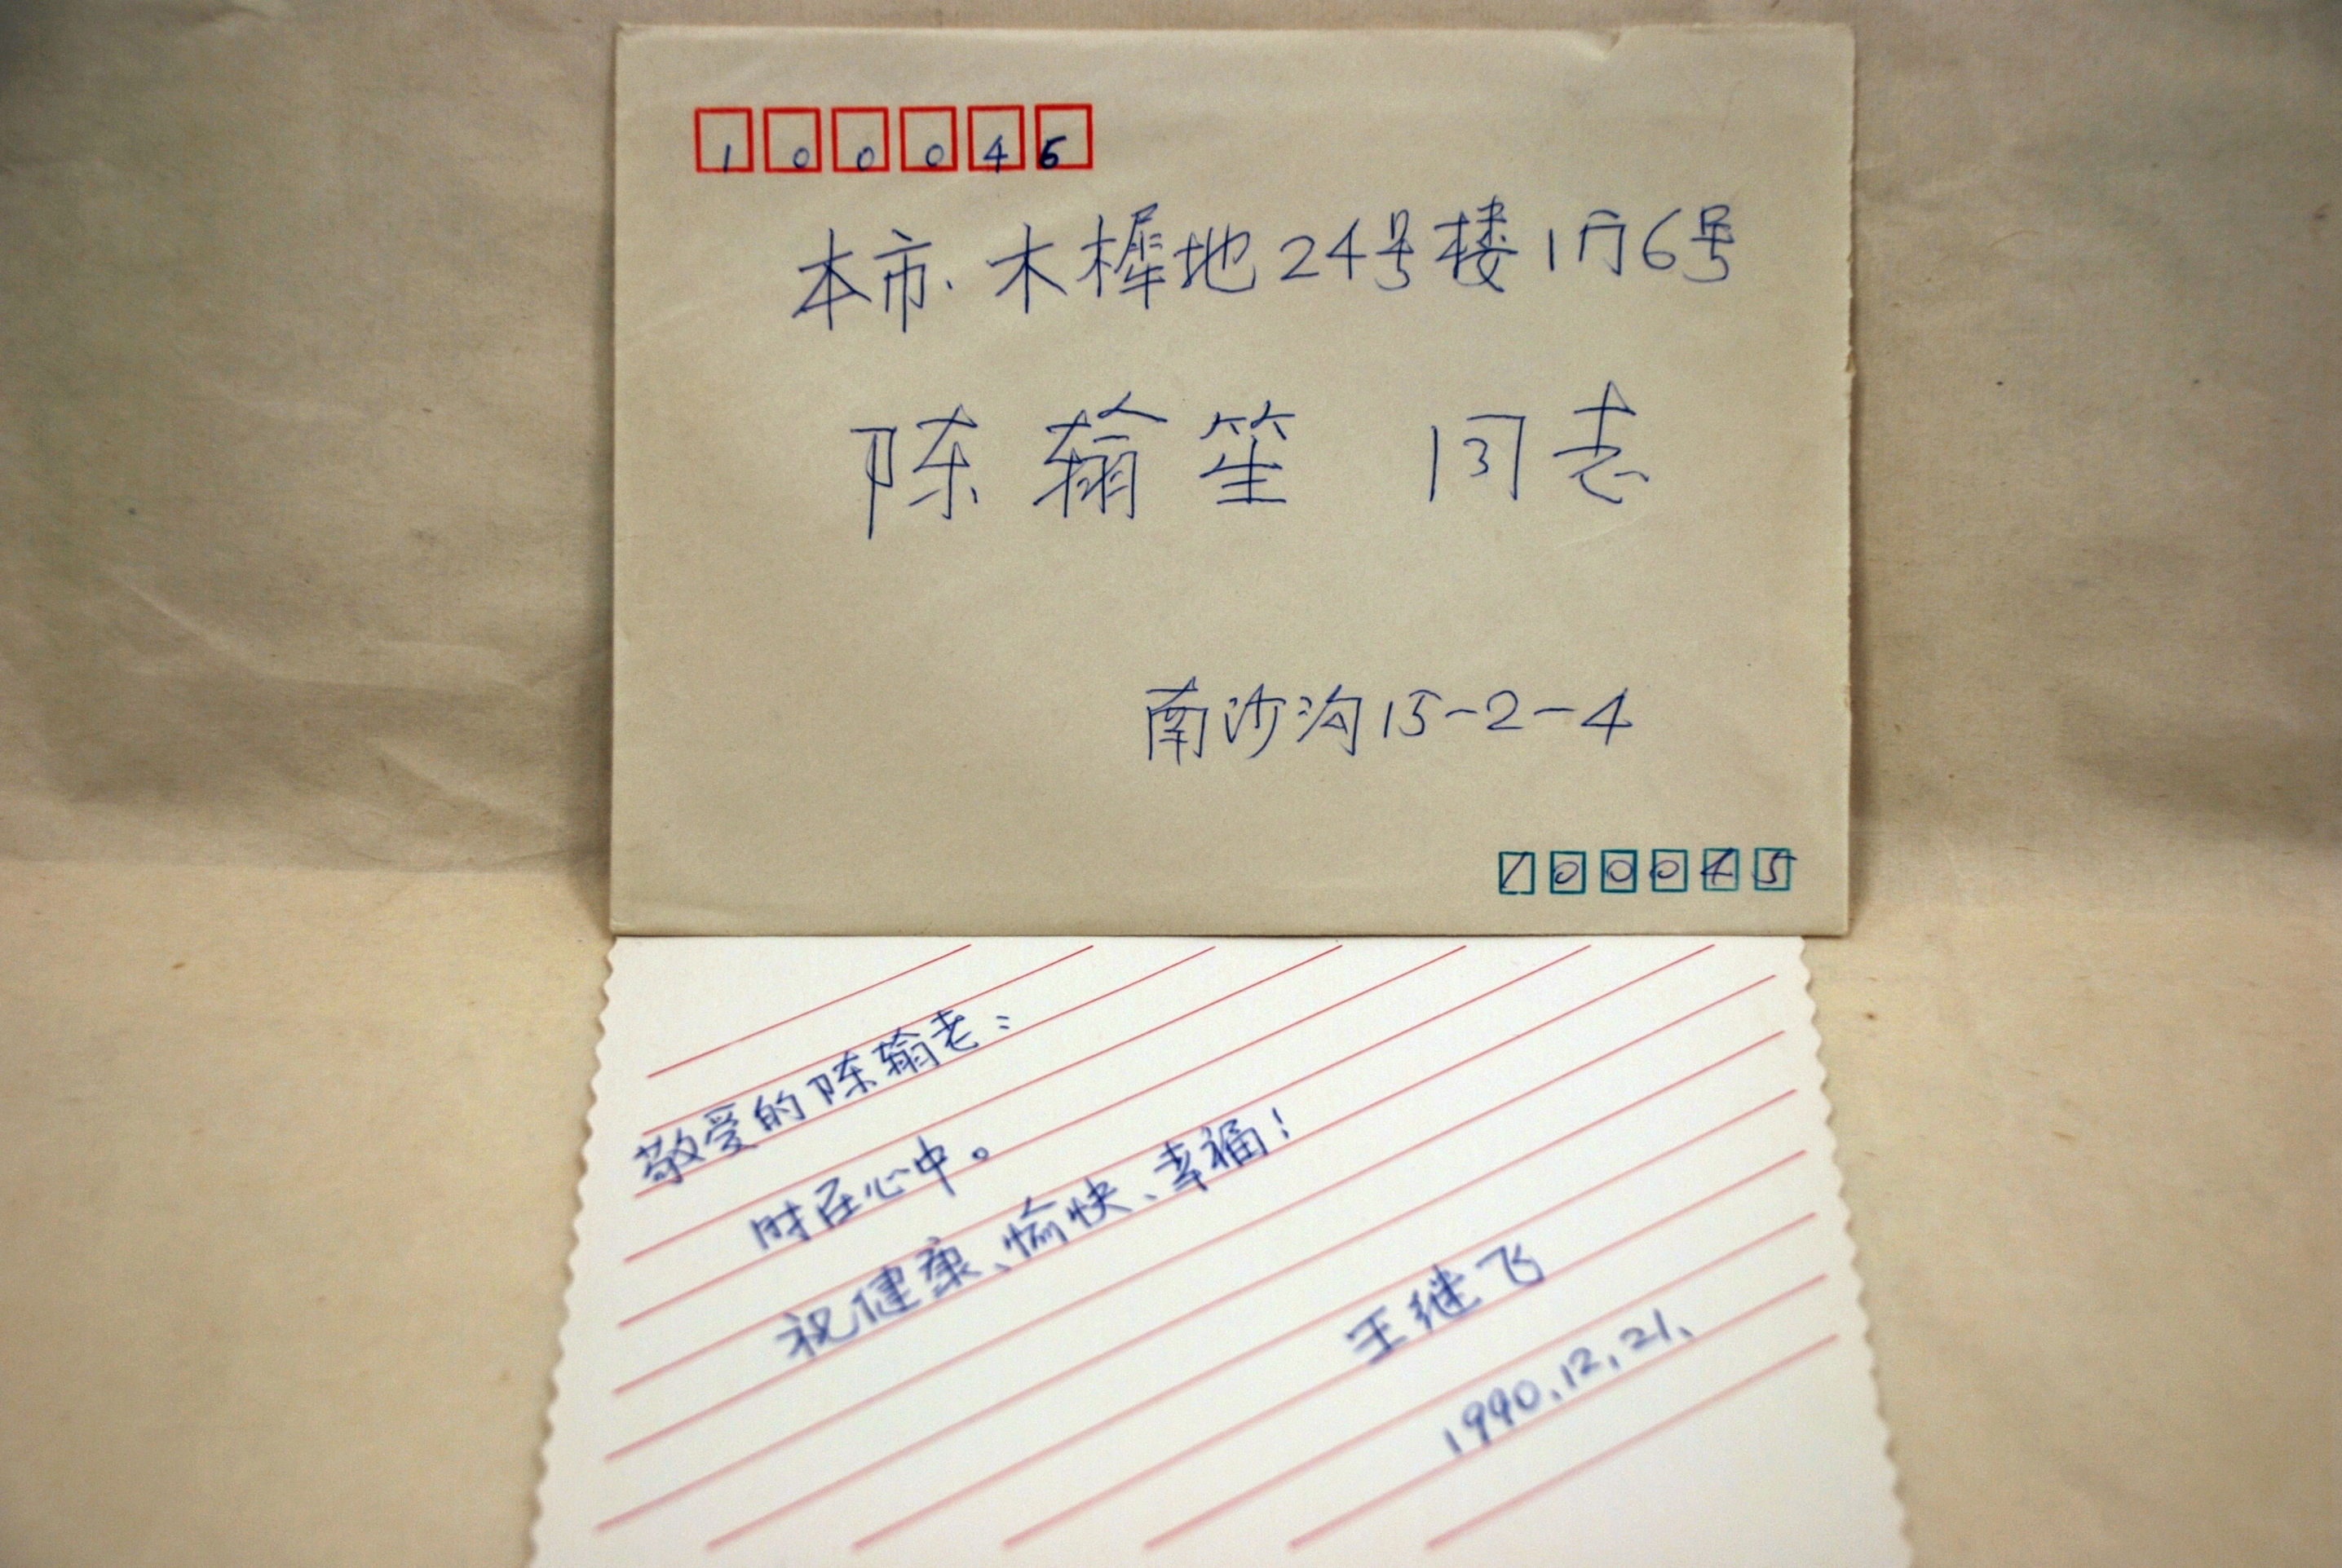 100046
本市.木樨地24号楼1门6号
陈翰笙 同志
南沙沟15-2-4
100045
敬爱的陈翰老：
时在心中。
祝健康、愉快、幸福！
王继飞
1990.12.21.